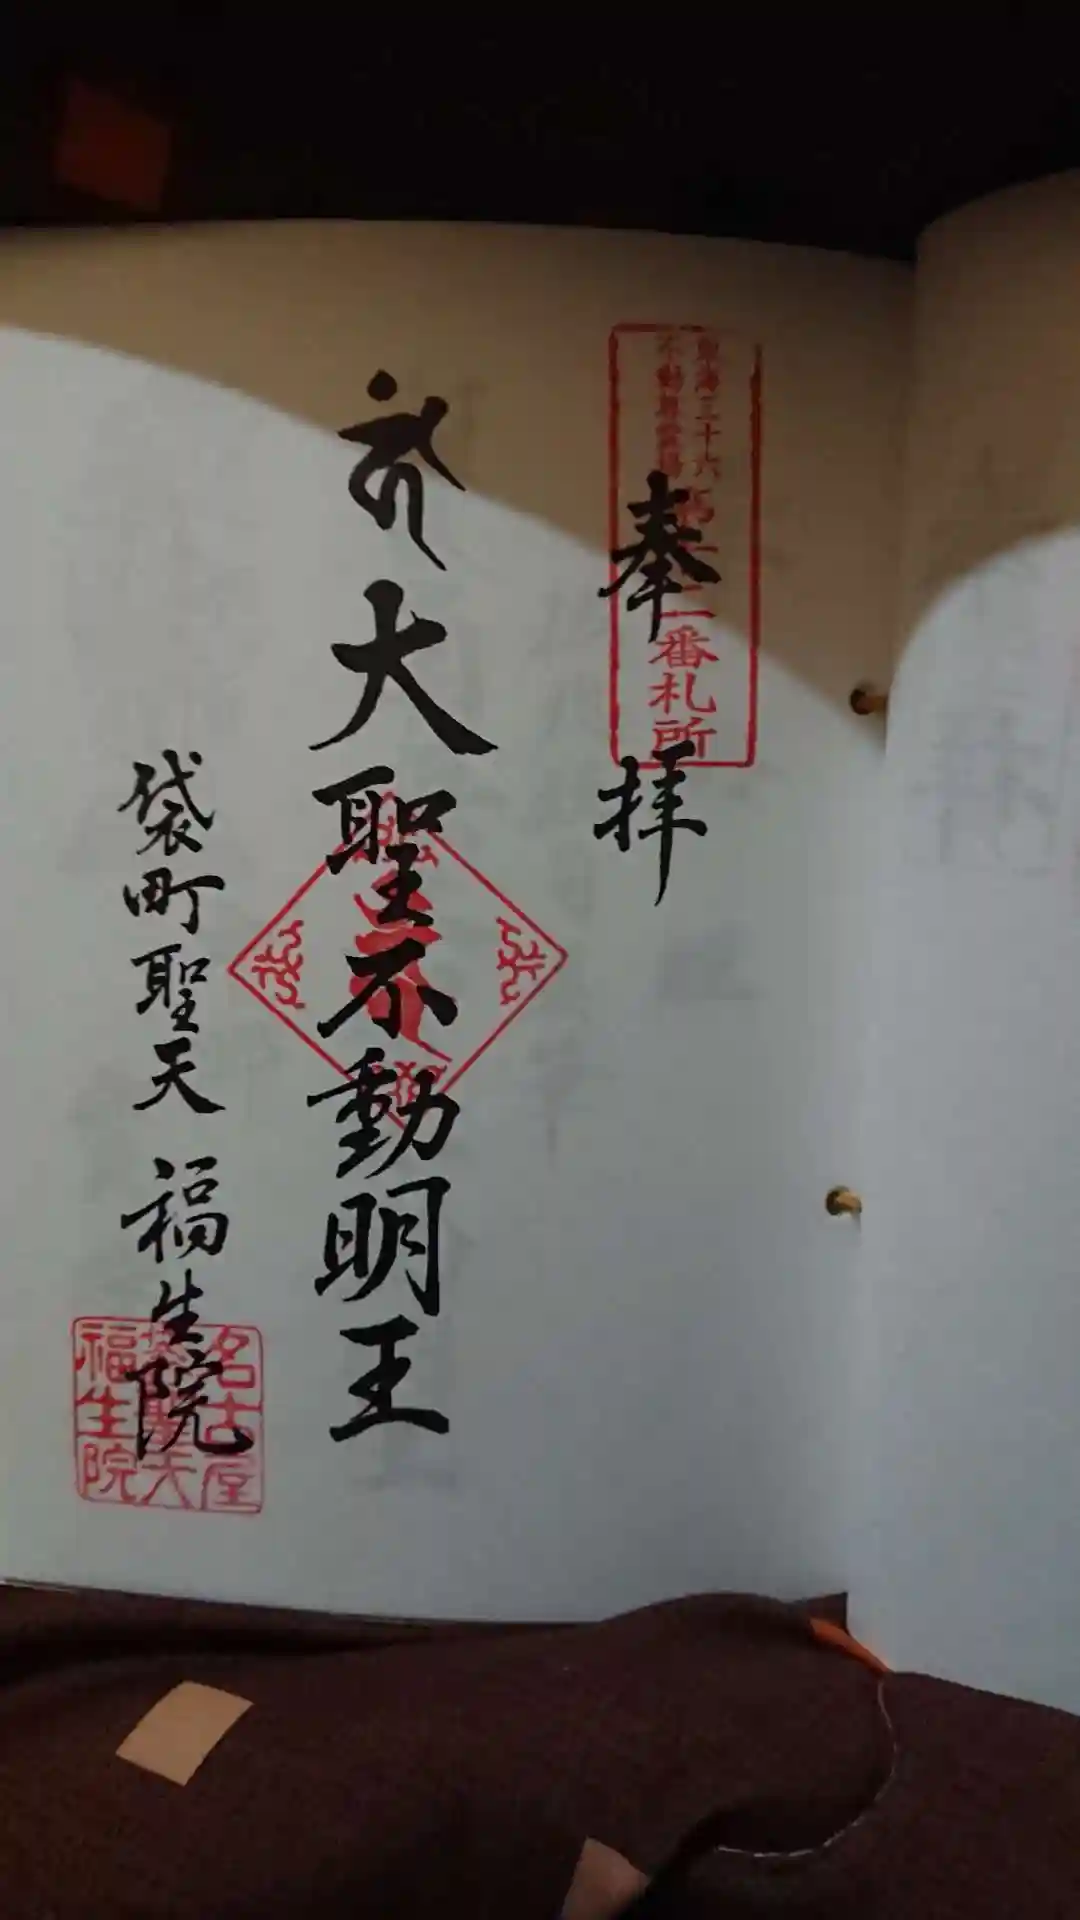 東海三十六
不動尊霊場
番札所
奉拝
大聖不動明王
袋町聖天 福生院
名古屋
聖天
福生院